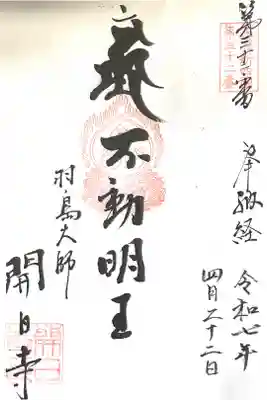 第三十一番
奉納経
令和七年
四月二十二日
不動明王
羽島大師
開日寺